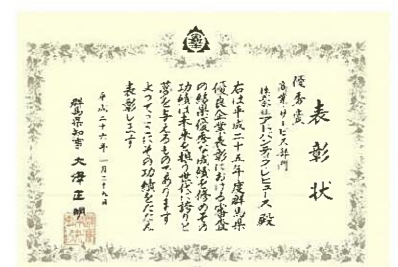 表彰状
優秀賞
商業・サービス部門
株式会社アーバンディベロップ 殿
右は平成二十五年度群馬県
優良企業表彰における審査
の結果優秀な成績を修めその
功績は未来を担う世代に誇りと
夢を与えるものであります
よってここにその功績をたたえ
表彰します
平成二十六年一月二十九日
群馬県知事 大澤正明